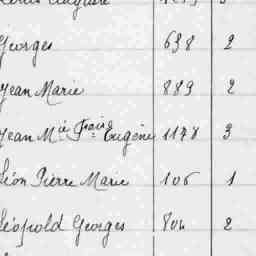 Georges 638 2
Jean Marie 889 2
Jean Mie Frois Eugène 1178 3
Léon Pierre Marie 106 1
Léopold Georges 804 2